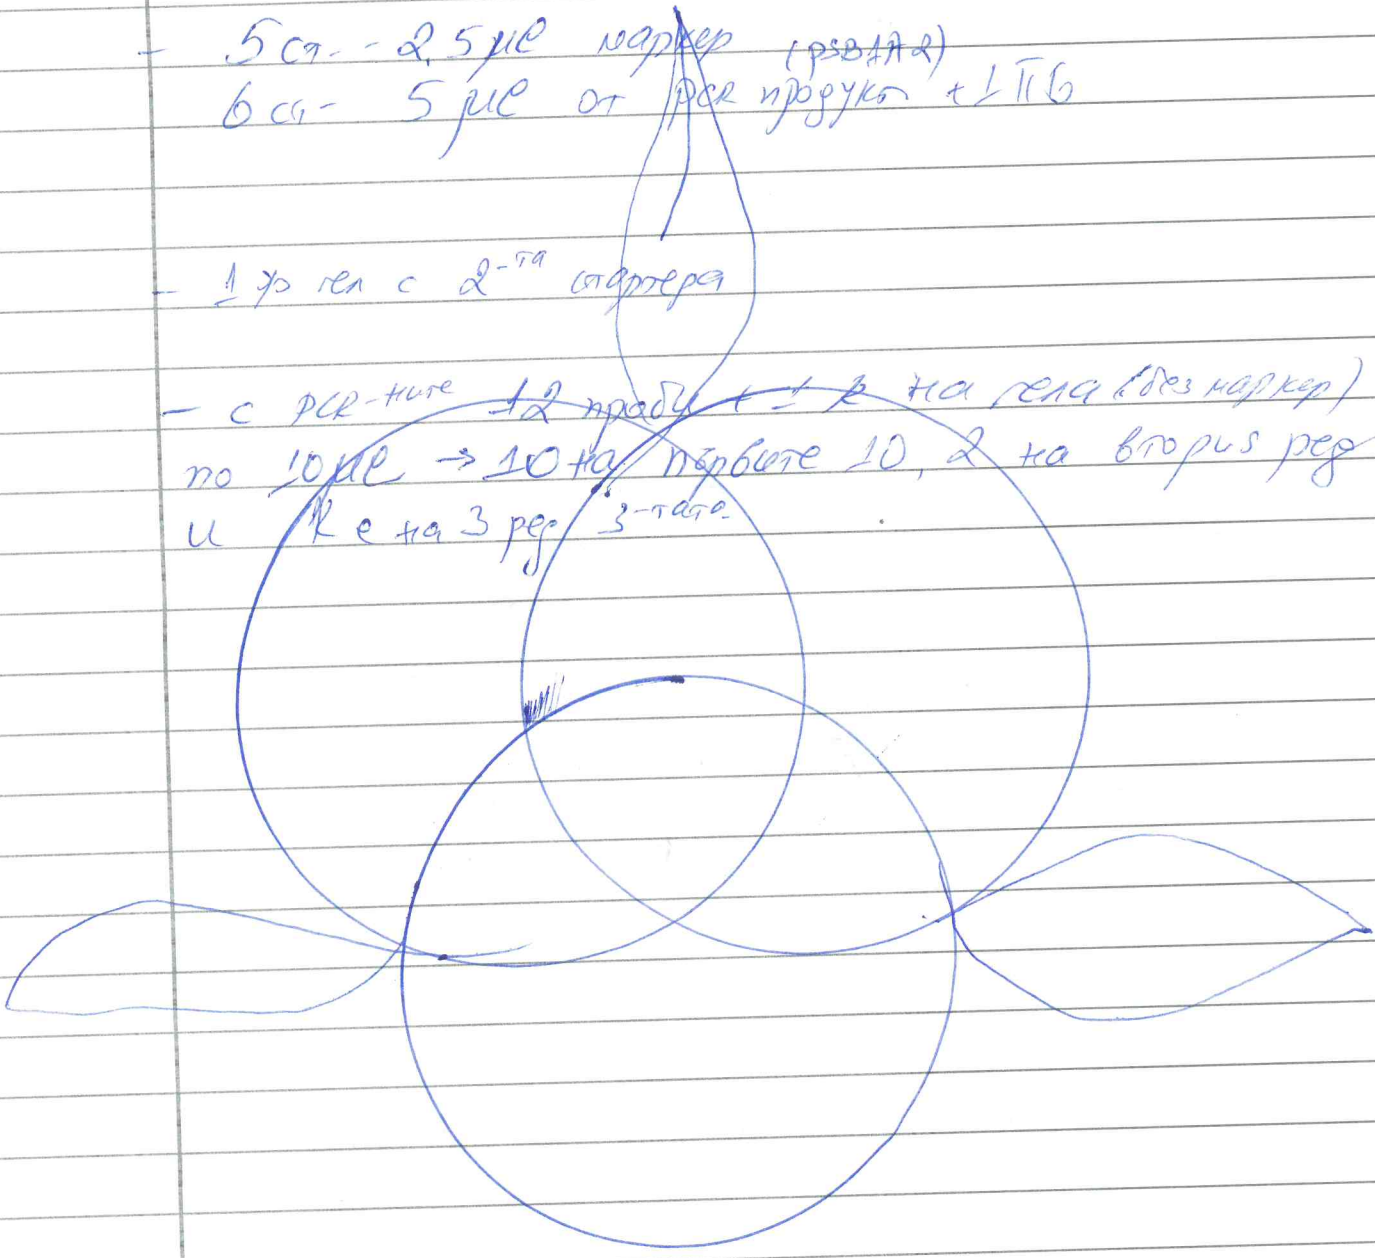 - 5 ст - 2,5 μl маркер (pSB1A2)
6 ст - 5 μl от PCR продукт + 1 ПБ
- 1 гел с 2-та стартера
- с PCR-ните 12 проби + 1 k на гела (без маркер)
по 10 μl → 10 на първите 10, 2 на втория ред
и k е на 3 ред 3-тата.